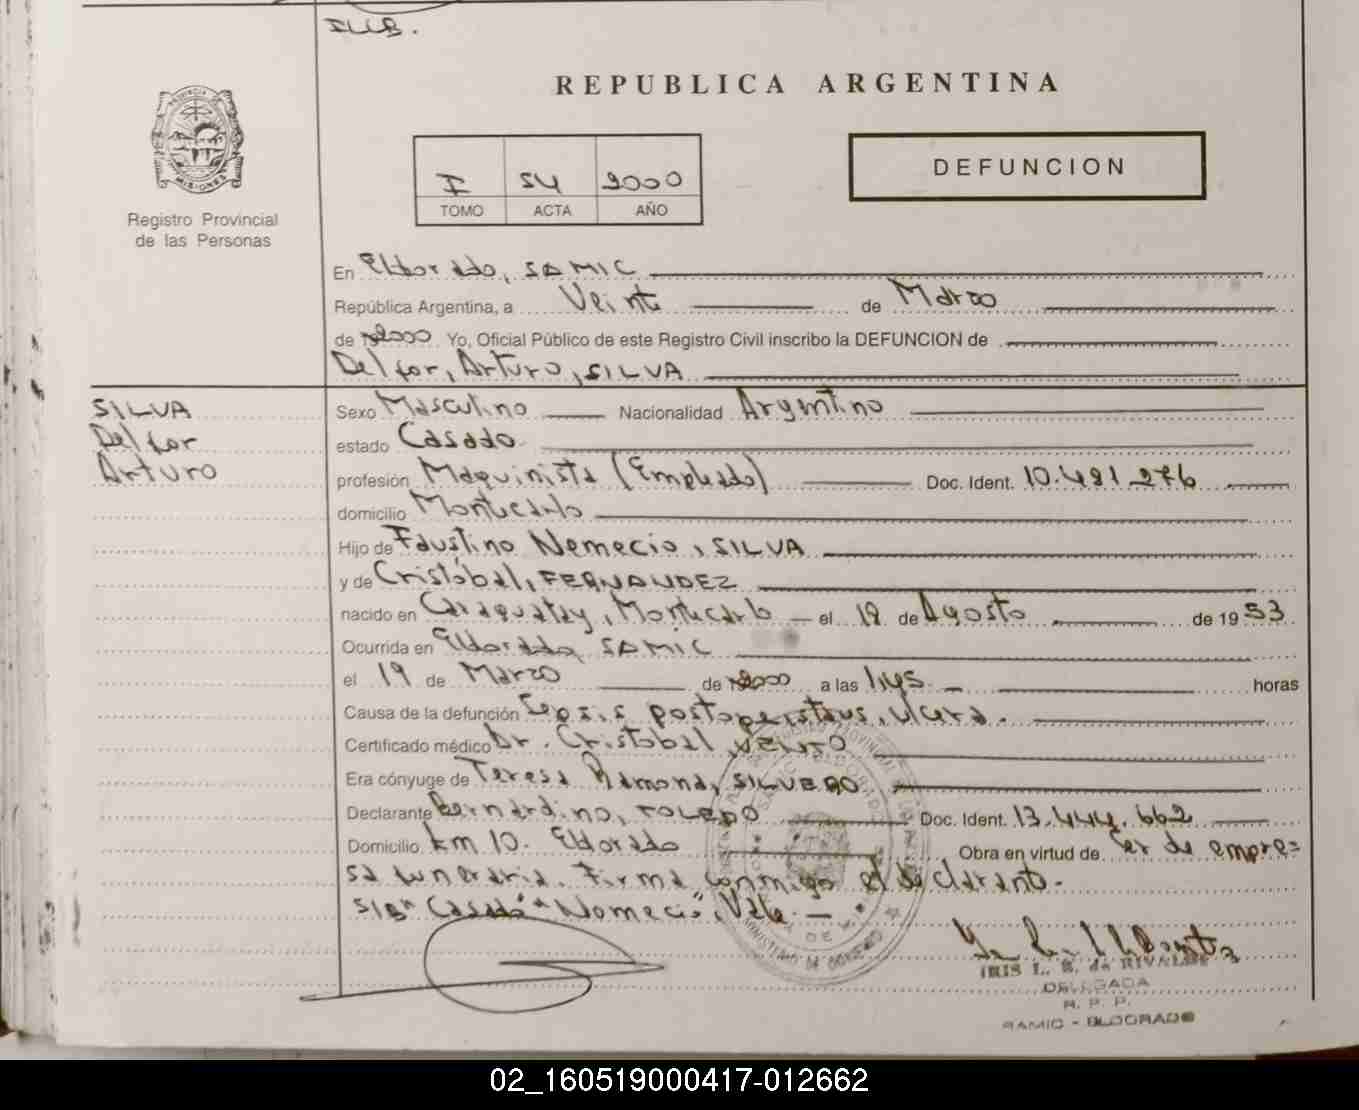 REPUBLICA ARGENTINA
PROVINCIA DE
MISIONES
Registro Provincial
de las Personas
I 54 2000
TOMO ACTA AÑO
DEFUNCION
En Eldorado, SAMIC
República Argentina, a Veinte de Marzo
de 2000 Yo, Oficial Público de este Registro Civil inscribo la DEFUNCION de
Delfor, Arturo, SILVA
SILVA
Delfor
Arturo
Sexo Masculino Nacionalidad Argentino
estado Casado
profesión Maquinista (Empleado) Doc. Ident. 10.481.276
domicilio Montecarlo
Hijo de Faustino Nemecio, SILVA
y de Cristóbal, FERNANDEZ
nacido en Caraguatay, Montecarlo el 18 de Agosto de 1953
Ocurrida en Eldorado, SAMIC
el 19 de Marzo de 2000 a las 1,45 horas
Causa de la defunción Sepsis , ulcera.
Certificado médico Dr. Cristobal
Era cónyuge de Teresa Ramona, SILVERO
Declarante Bernardino, TOLEDO Doc. Ident. 13.444.662
Domicilio km 10. Eldorado Obra en virtud de ser de empre=
sa funeraria. Firma conmigo el declarante.
S/B" Casado" Nomecio", Vale.
MINISTERIO DE GOBIERNO
IRIS L. B. de RIVALDI
DELEGADA
R. P. P.
SAMIC - ELDORADO
02_160519000417-012662